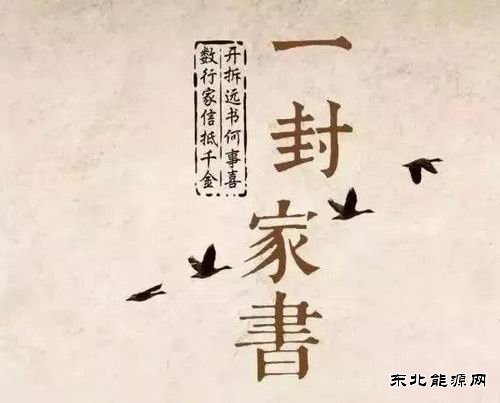 一封家書
开拆远书何事喜
数行家信抵千金
东北能源网